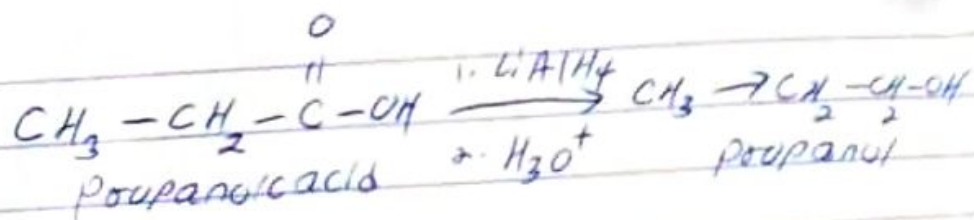 O
||
CH₃ – CH₂ – C – OH 1. LiAlH₄ 2. H₃O⁺ → CH₃ → CH₂ – CH₂ – OH
Propanoic acid propanol